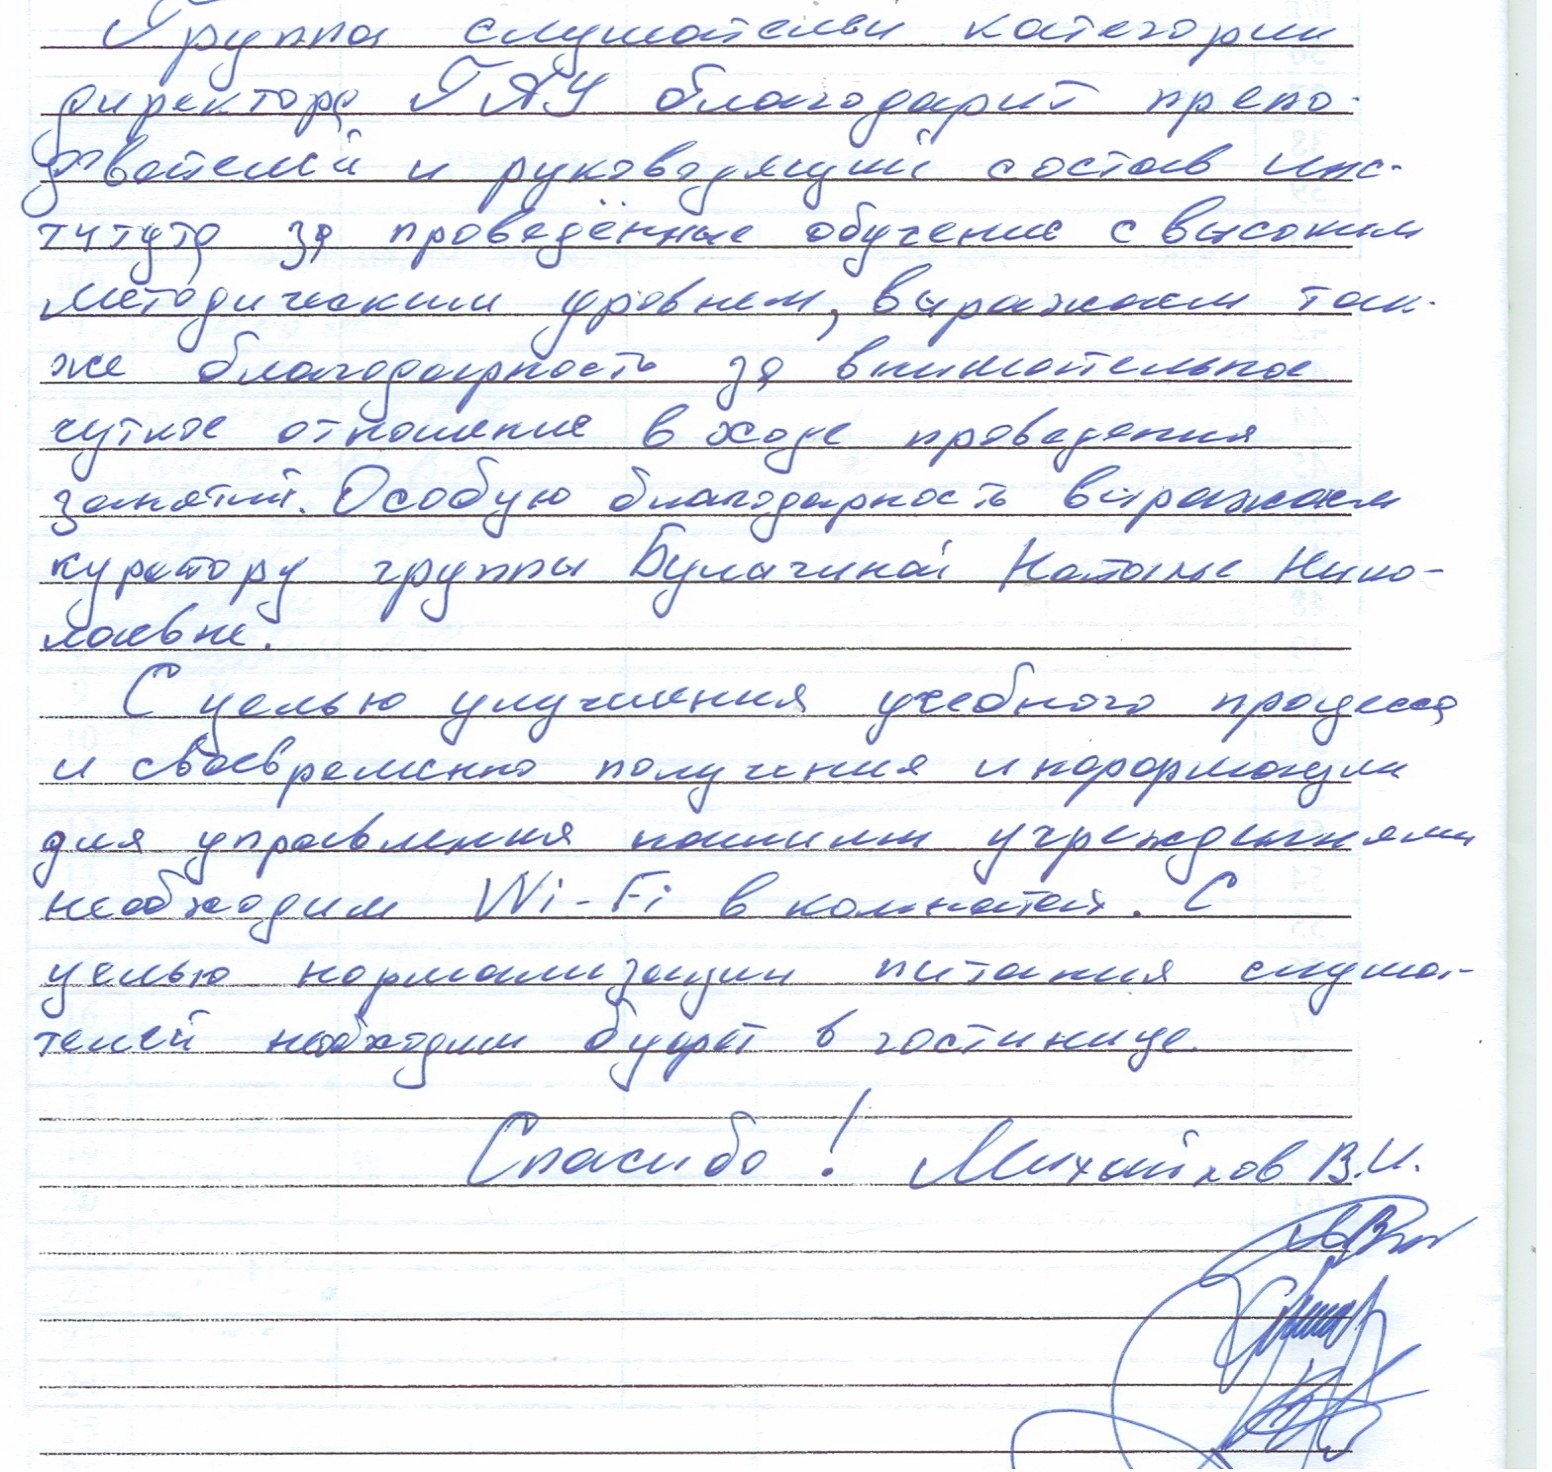 Группа слушателей категории
директора ГАУ благодарит препо-
давателей и руководящий состав инс-
титута за проведённые обучение с высоким
методическим уровнем, выражаем так-
же благодарность за внимательное
чуткое отношение в ходе проведения
занятий. Особую благодарность выражаем
куратору группы Булачиной Наталье Нико-
лаевне.
С целью улучшения учебного процесса
и своевременно получения информации
для управления нашими учреждениями
необходим Wi-Fi в комнатах. С
целью нормализации питания слуша-
телей необходим буфет в гостинице.
Спасибо! Михайлов В.И.